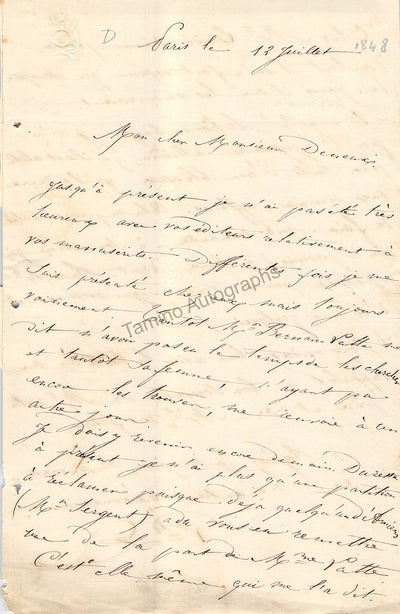 D
Paris le 12 Juillet 1848
Mon cher Monsieur
Jusqu'à présent je n'ai pas été très
heureux avec vos éditeurs relativement à
vos manuscrits. Différentes fois je me
suis présenté chez eux mais toujours
vainement. Tantôt Mr
dit n'avoir pas eu le temps de les chercher
et tantôt sa femme, n'ayant pu
encore les trouver, me renvoie à un
autre jour.
Je dois y revenir encore demain. Du reste
à présent je n'ai plus qu'une partition
à réclamer puisque déjà quelqu'un d'Amiens
(Mr Sergent) a dû vous en remettre
une de la part de Mme
C'est elle même qui me l'a dit.
Tamino Autographs